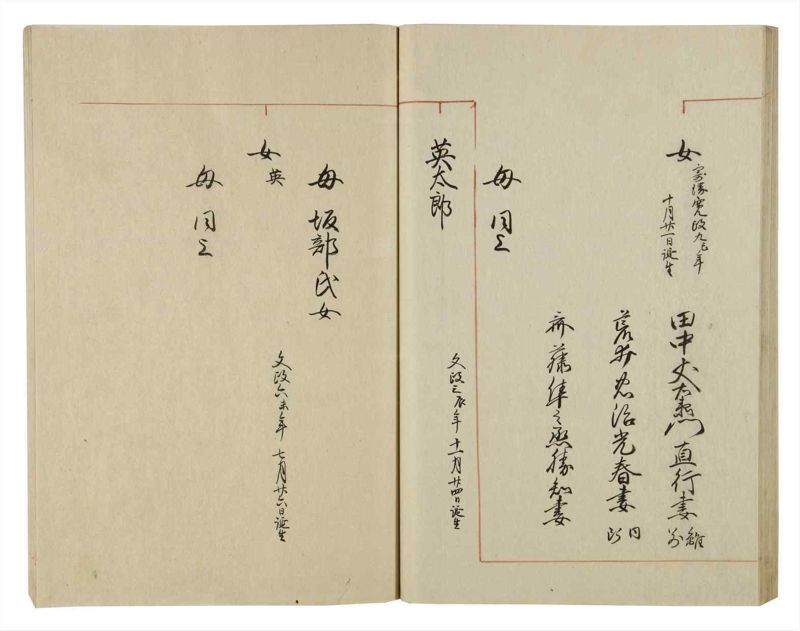 女
寛政九巳年
十月廿一日誕生
田中丈右衛門直行妻
離別
荒井忠治光春妻
同断
斎藤隼之丞勝知妻
母 同上
英太郎
文政三辰年十一月廿四日誕生
母 坂部氏女
女
英
文政六未年七月廿六日誕生
母 同上